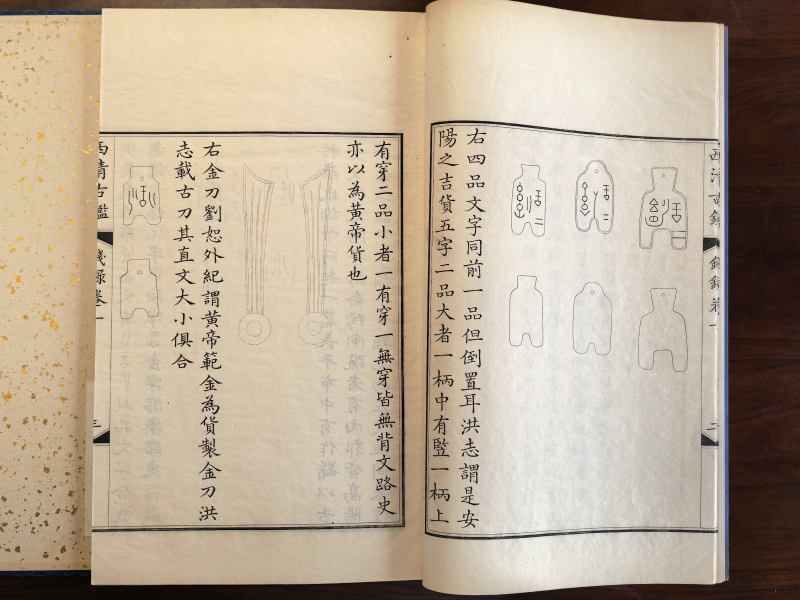 西清古鑑
錢錄卷一
二
右四品文字同前一品但倒置耳洪志謂是安
陽之吉貨五字二品大者一柄中有竖一柄上
有穿二品小者一有穿一無穿皆無背文路史
亦以為黃帝貨也
右金刀劉恕外紀謂黃帝範金為貨製金刀洪
志載古刀其直文大小俱合
西清古鑑
錢錄卷一
三